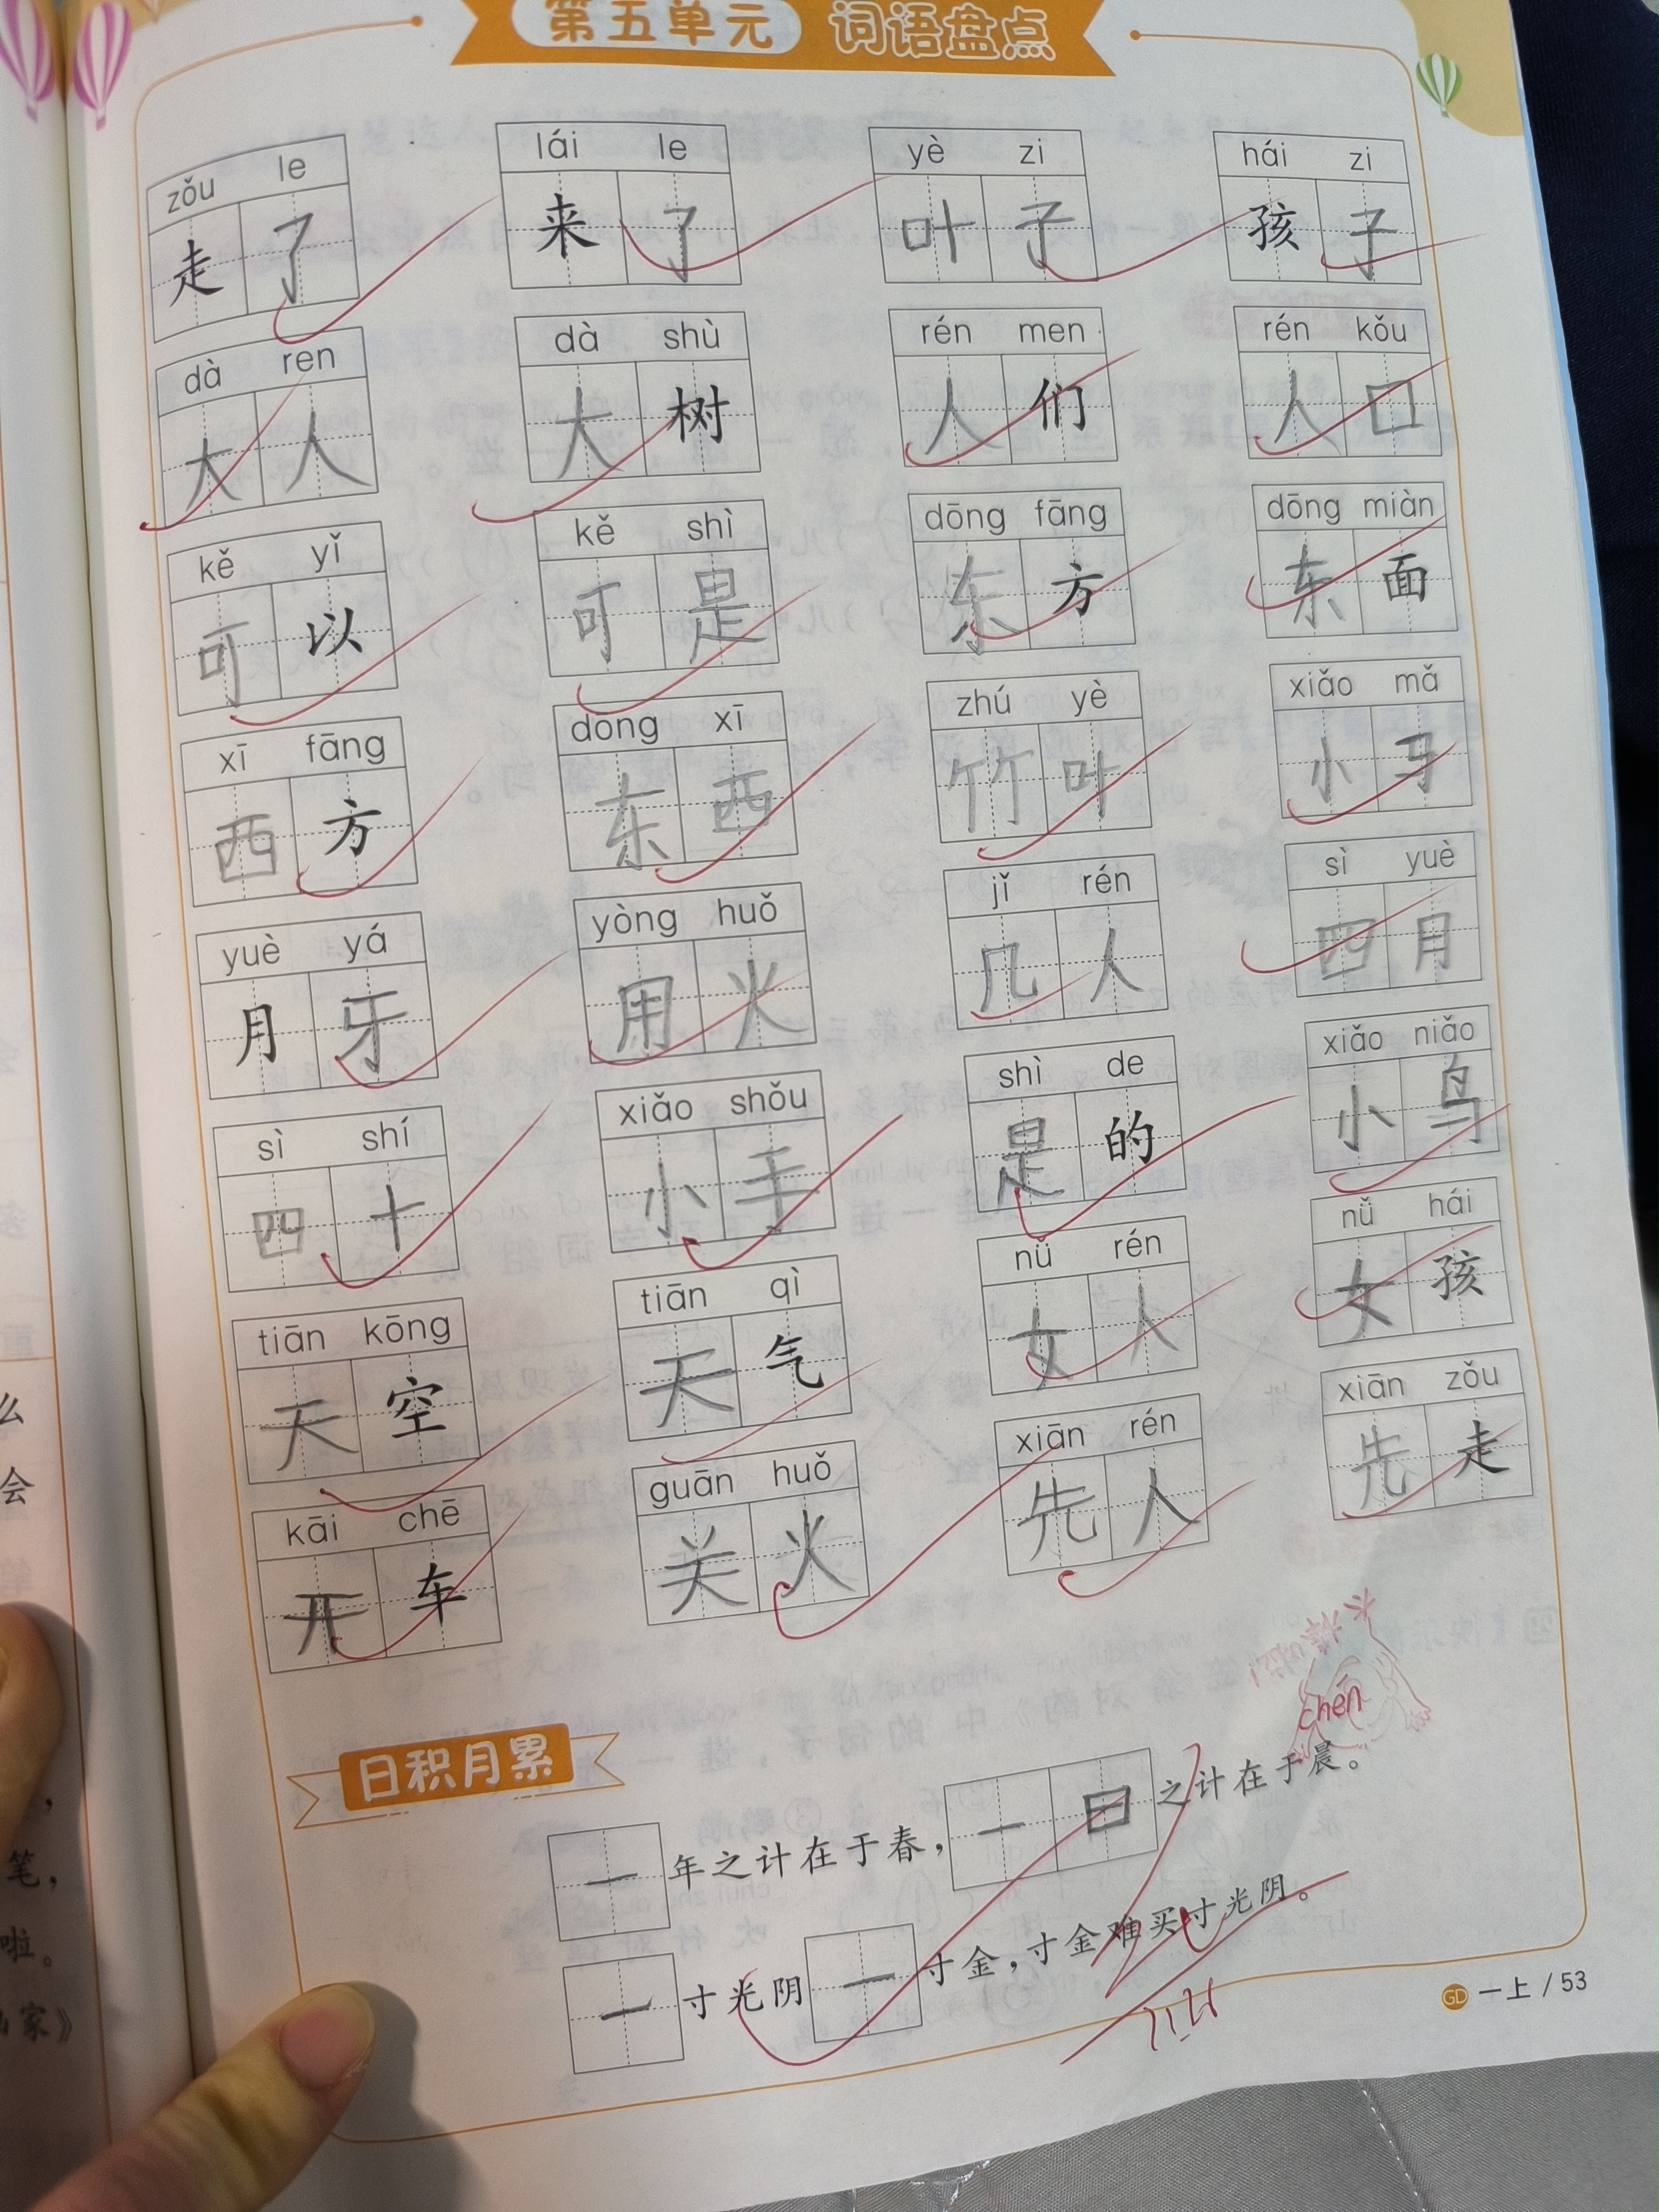 第五单元 词语盘点
zǒu le lái le yè zi hái zi
走了 来了 叶子 孩子
dà ren dà shù rén men rén kǒu
大人 大树 人们 人口
kě yǐ kě shì dōng fāng dōng miàn
可以 可是 东方 东面
xī fāng dōng xī zhú yè xiǎo mǎ
西方 东西 竹叶 小马
yuè yá yòng huǒ jǐ rén sì yuè
月牙 用火 几人 四月
sì shí xiǎo shǒu shì de xiǎo niǎo
四十 小手 是的 小鸟
tiān kōng tiān qì nǚ rén nǚ hái
天空 天气 女人 女孩
kāi chē guān huǒ xiān rén xiān zǒu
开车 关火 先人 先走
日积月累
chén
一年之计在于春，一日之计在于晨。
一寸光阴一寸金，寸金难买寸光阴。
GD 一上 / 53